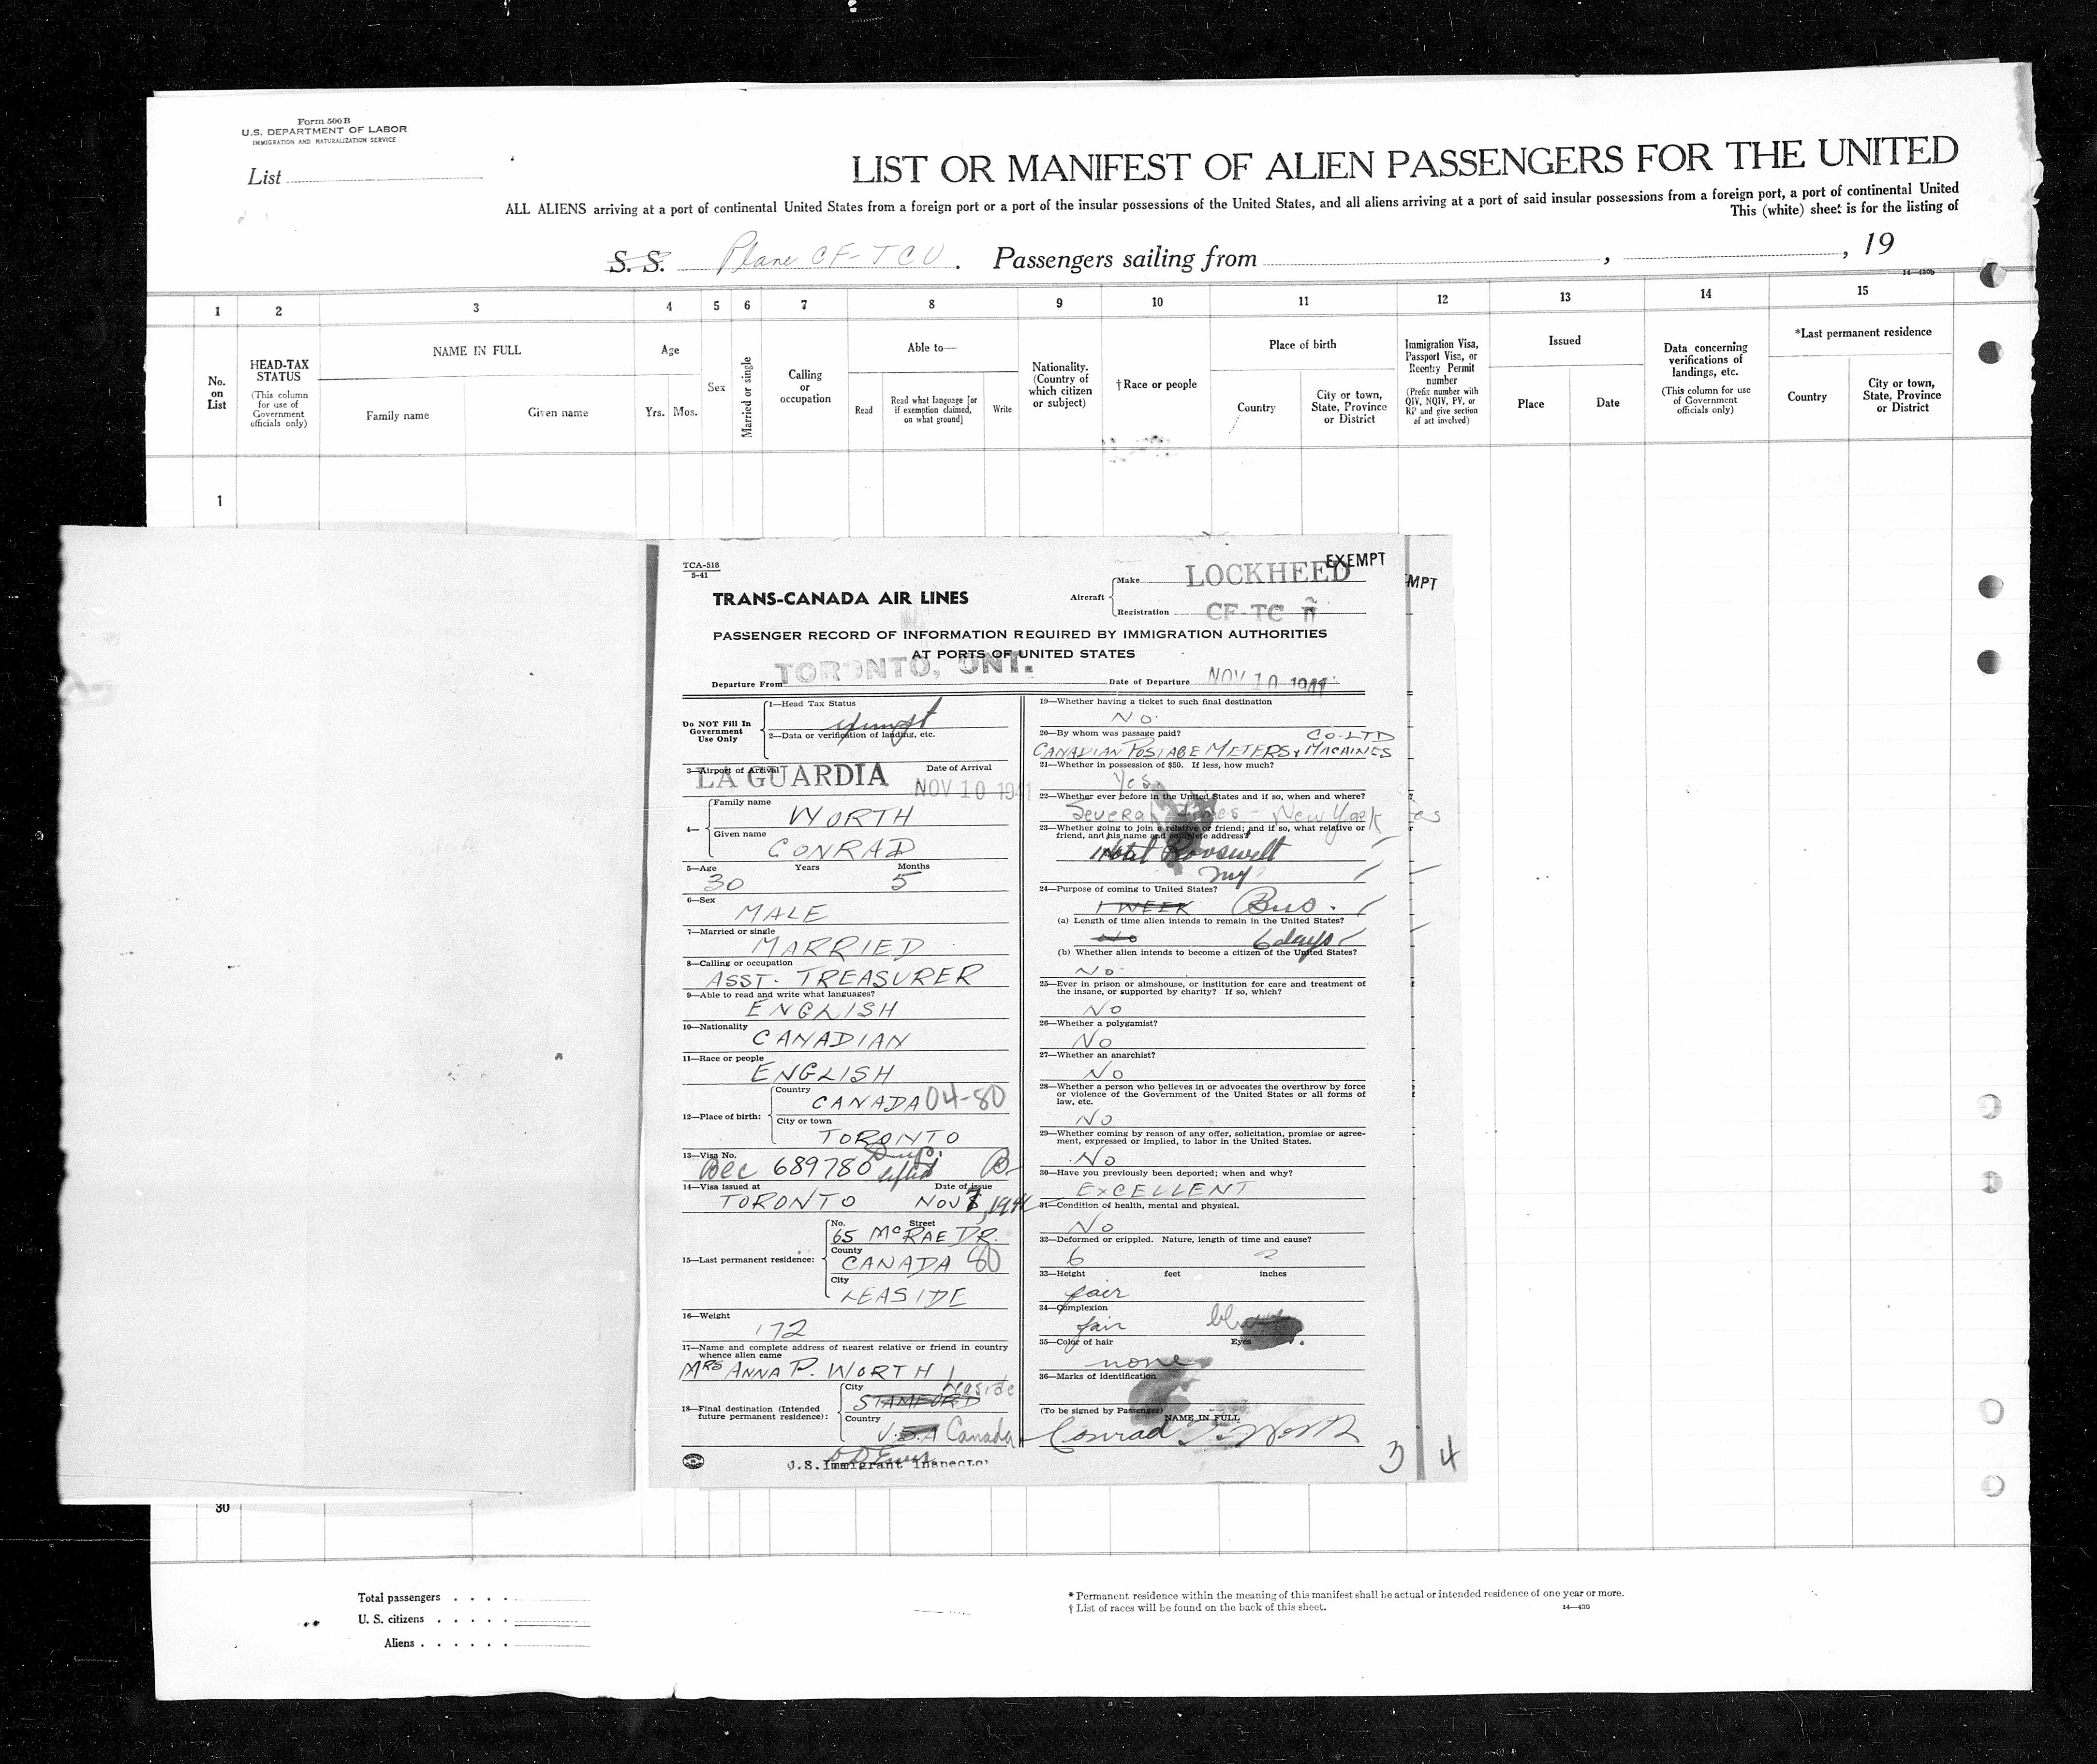 Form 500 B
U.S. DEPARTMENT OF LABOR
IMMIGRATION AND NATURALIZATION SERVICE
List
LIST OR MANIFEST OF ALIEN PASSENGERS FOR THE UNITED
ALL ALIENS arriving at a port of continental United States from a foreign port or a port of the insular possessions of the United States, and all aliens arriving at a port of said insular possessions from a foreign port, a port of continental United
This (white) sheet is for the listing of
S. S. Plane CF-TCU. Passengers sailing from , , 19
14—430b
1 2 3 4 5 6 7 8 9 10 11 12 13 14 15
No. on List
HEAD-TAX STATUS
(This column for use of Government officials only)
NAME IN FULL
Family name Given name
Age
Yrs. Mos.
Sex
Married or single
Calling or occupation
Able to—
Read
Read what language [or if exemption claimed, on what ground]
Write
Nationality. (Country of which citizen or subject)
† Race or people
Place of birth
Country
City or town, State, Province or District
Immigration Visa, Passport Visa, or Reentry Permit number
(Prefix number with QIV, NQIV, PV, or RP and give section of act involved)
Issued
Place Date
Data concerning verifications of landings, etc.
(This column for use of Government officials only)
*Last permanent residence
Country
City or town, State, Province or District
1
TCA-518
5-41
TRANS-CANADA AIR LINES
Aircraft
Make LOCKHEED
EXEMPT
MPT
Registration CF-TC
PASSENGER RECORD OF INFORMATION REQUIRED BY IMMIGRATION AUTHORITIES
AT PORTS OF UNITED STATES
Departure From TORONTO, ONT.
Date of Departure NOV 10 1941
Do NOT Fill In Government Use Only
1—Head Tax Status
exempt
2—Data or verification of landing, etc.
3—Airport of Arrival LA GUARDIA
Date of Arrival NOV 10 1941
4—
Family name
WORTH
Given name
CONRAD
5—Age Years Months
30 5
6—Sex
MALE
7—Married or single
MARRIED
8—Calling or occupation
ASST. TREASURER
9—Able to read and write what languages?
ENGLISH
10—Nationality
CANADIAN
11—Race or people
ENGLISH
12—Place of birth:
Country
CANADA 04-80
City or town
TORONTO
13—Visa No.
689780 lifted B-
14—Visa issued at Date of issue
TORONTO NOV 7, 1941
15—Last permanent residence:
No. Street
65 McRAE DR.
County
CANADA 80
City
LEASIDE
16—Weight
172
17—Name and complete address of nearest relative or friend in country whence alien came
MRS ANNA P. WORTH
18—Final destination (Intended future permanent residence):
City
STAMFORD Leaside
Country
U.S.A Canada
U.S. Immigrant Inspector
19—Whether having a ticket to such final destination
NO
20—By whom was passage paid?
CO-LTD
CANADIAN POSTAGE METERS & MACAINES
21—Whether in possession of $50. If less, how much?
Yes
22—Whether ever before in the United States and if so, when and where?
Several times - New York
es
23—Whether going to join a relative or friend; and if so, what relative or
friend, and his name and complete address?
Hotel Roosevelt
NY
24—Purpose of coming to United States?
1 WEEK Bus.
(a) Length of time alien intends to remain in the United States?
No 6 days
(b) Whether alien intends to become a citizen of the United States?
No
25—Ever in prison or almshouse, or institution for care and treatment of
the insane, or supported by charity? If so, which?
No
26—Whether a polygamist?
No
27—Whether an anarchist?
No
28—Whether a person who believes in or advocates the overthrow by force
or violence of the Government of the United States or all forms of
law, etc.
No
29—Whether coming by reason of any offer, solicitation, promise or agree-
ment, expressed or implied, to labor in the United States.
No
30—Have you previously been deported; when and why?
EXCELLENT
31—Condition of health, mental and physical.
No
32—Deformed or crippled. Nature, length of time and cause?
6 2
33—Height feet inches
fair
34—Complexion
fair blue
35—Color of hair Eyes
none
36—Marks of identification
(To be signed by Passenger)
NAME IN FULL
Conrad T. Worth
3 4
30
Total passengers
U. S. citizens
Aliens
* Permanent residence within the meaning of this manifest shall be actual or intended residence of one year or more.
† List of races will be found on the back of this sheet.
14—430